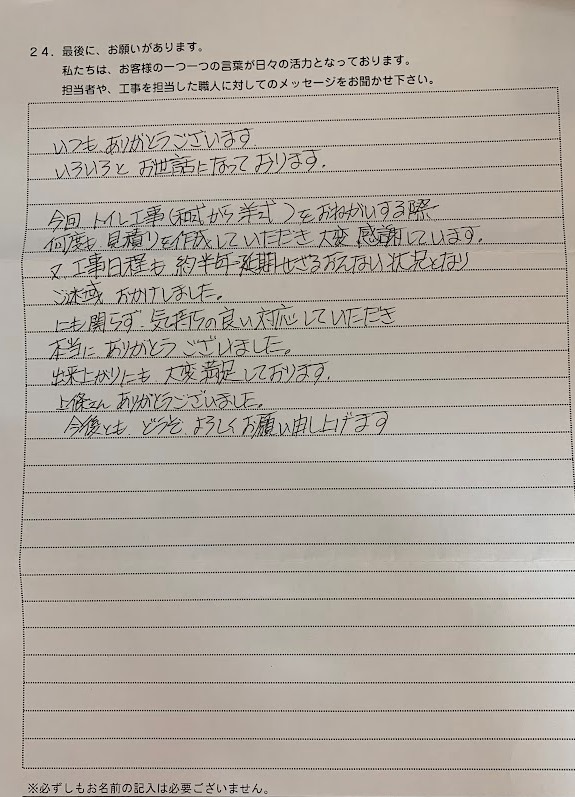 24．最後に、お願いがあります。
私たちは、お客様の一つ一つの言葉が日々の活力となっております。
担当者や、工事を担当した職人に対してのメッセージをお聞かせ下さい。
いつも ありがとうございます
いろいろと お世話になっております。
今回 トイレ工事(和式から洋式 )をおねがいする際
何度も 見積りを作成していただき 大変 感謝しています。
又 工事日程も 約半年延期せざるおえない 状況となり
ご迷惑 おかけしました。
にも関らず 気持ちの良い対応していただき
本当に ありがとう ございました。
出来上がりにも 大変満足しております。
上條さん ありがとうございました。
今後とも どうぞ よろしくお願い申し上げます
※必ずしもお名前の記入は必要ございません。